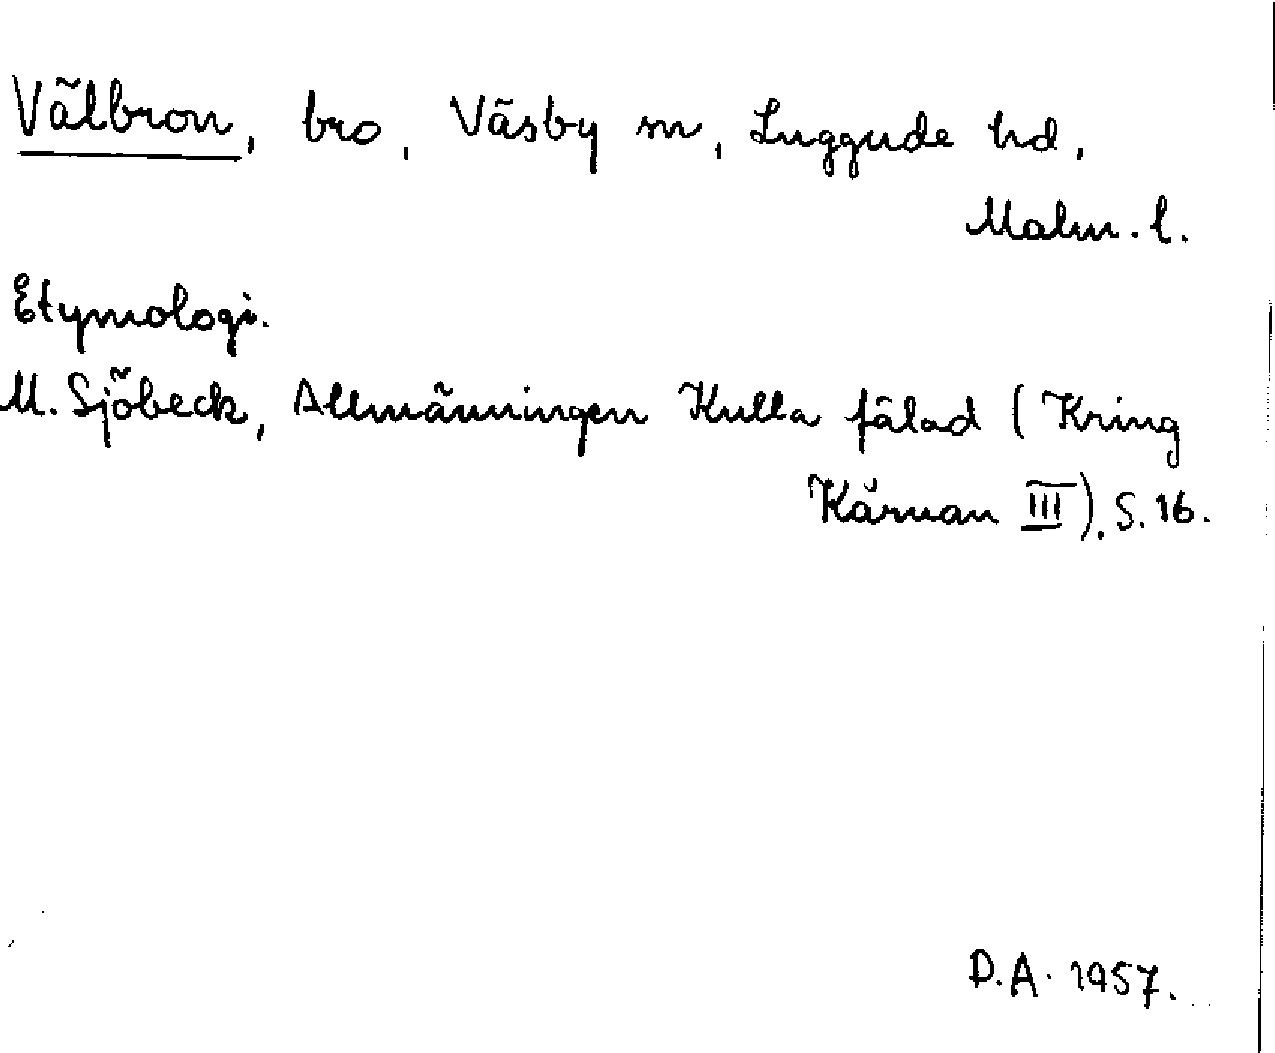 Välbron, bro, Väsby sn, Luggude hd,
Malm. l.
Etymologi.
M. Sjöbeck, Allmänningen Kulla fälad (Kring
Kärnan III). S. 16.
D.A. 1957.